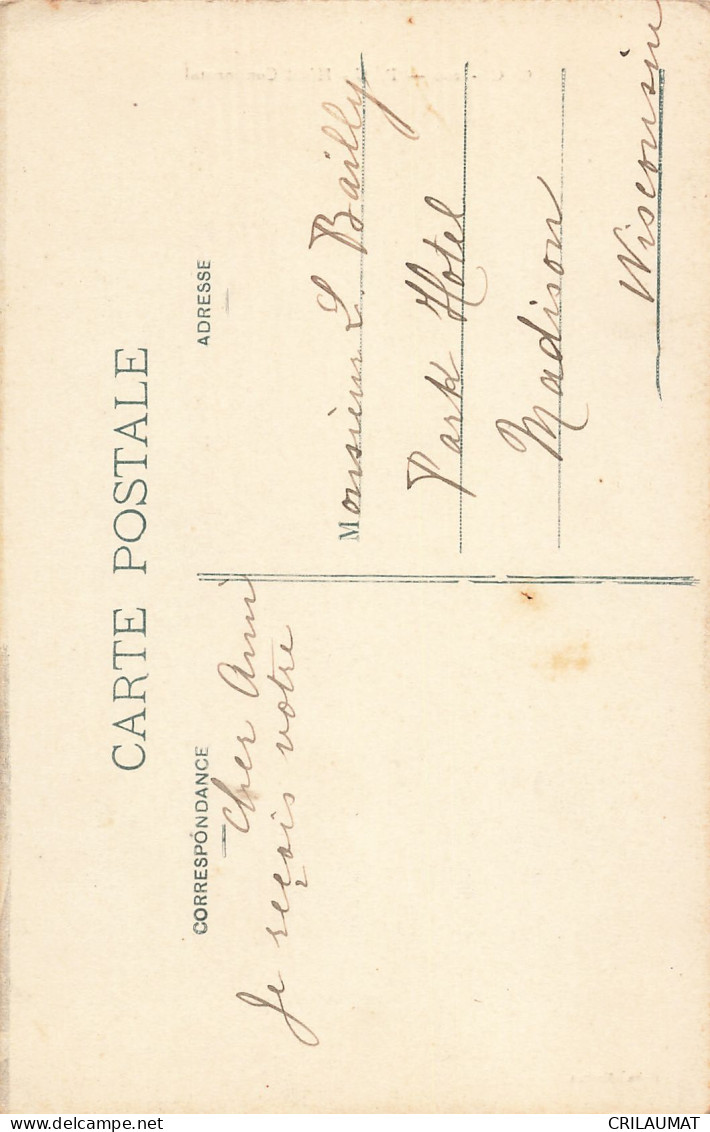 CARTE POSTALE
CORRESPONDANCE
Cher Ami
Je reçois votre
ADRESSE
Monsieur L. Bailly
Park Hotel
Madison
Wisconsin
CRILAUMAT